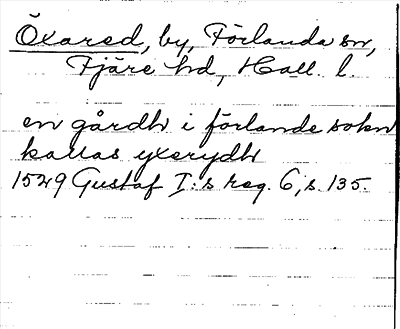 Öxared, by, Förlanda sn,
Fjäre hd, Hall. l.
en gårdh i förlande sokn
kallas yxerydh
1529 Gustaf I:s reg. 6, s. 135.